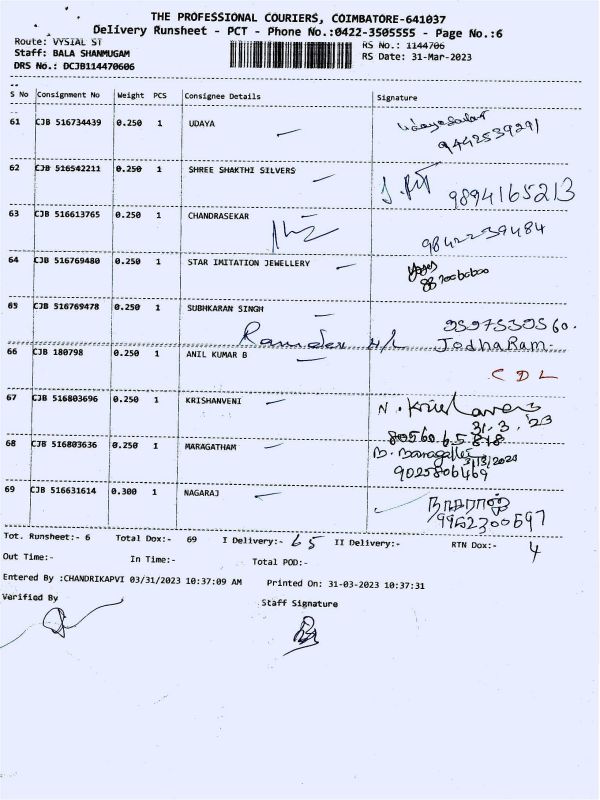 THE PROFESSIONAL COURIERS, COIMBATORE-641037
Delivery Runsheet - PCT - Phone No.:0422-3505555 - Page No.:6
Route: VYSIAL ST
RS No.: 1144706
Staff: BALA SHANMUGAM
RS Date: 31-Mar-2023
DRS No.: DCJB114470606
S No Consignment No Weight PCS Consignee Details Signature
61 CJB 516734439 0.250 1 UDAYA
9442539291
62 CJB 516542211 0.250 1 SHREE SHAKTHI SILVERS
9894165213
63 CJB 516613765 0.250 1 CHANDRASEKAR
9842239484
64 CJB 516769480 0.250 1 STAR IMITATION JEWELLERY
65 CJB 516769478 0.250 1 SUBHKARAN SINGH
9597530560.
JodhaRam.
66 CJB 180798 0.250 1 ANIL KUMAR B
CDL
67 CJB 516803696 0.250 1 KRISHANVENI
31.3.'23
68 CJB 516803636 0.250 1 MARAGATHAM
9025806469
69 CJB 516631614 0.300 1 NAGARAJ
நாகராஜ்
9952300597
Tot. Runsheet:- 6 Total Dox:- 69 I Delivery:- 65 II Delivery:- RTN Dox:- 4
Out Time:- In Time:- Total POD:-
Entered By :CHANDRIKAPVI 03/31/2023 10:37:09 AM Printed On: 31-03-2023 10:37:31
Verified By Staff Signature